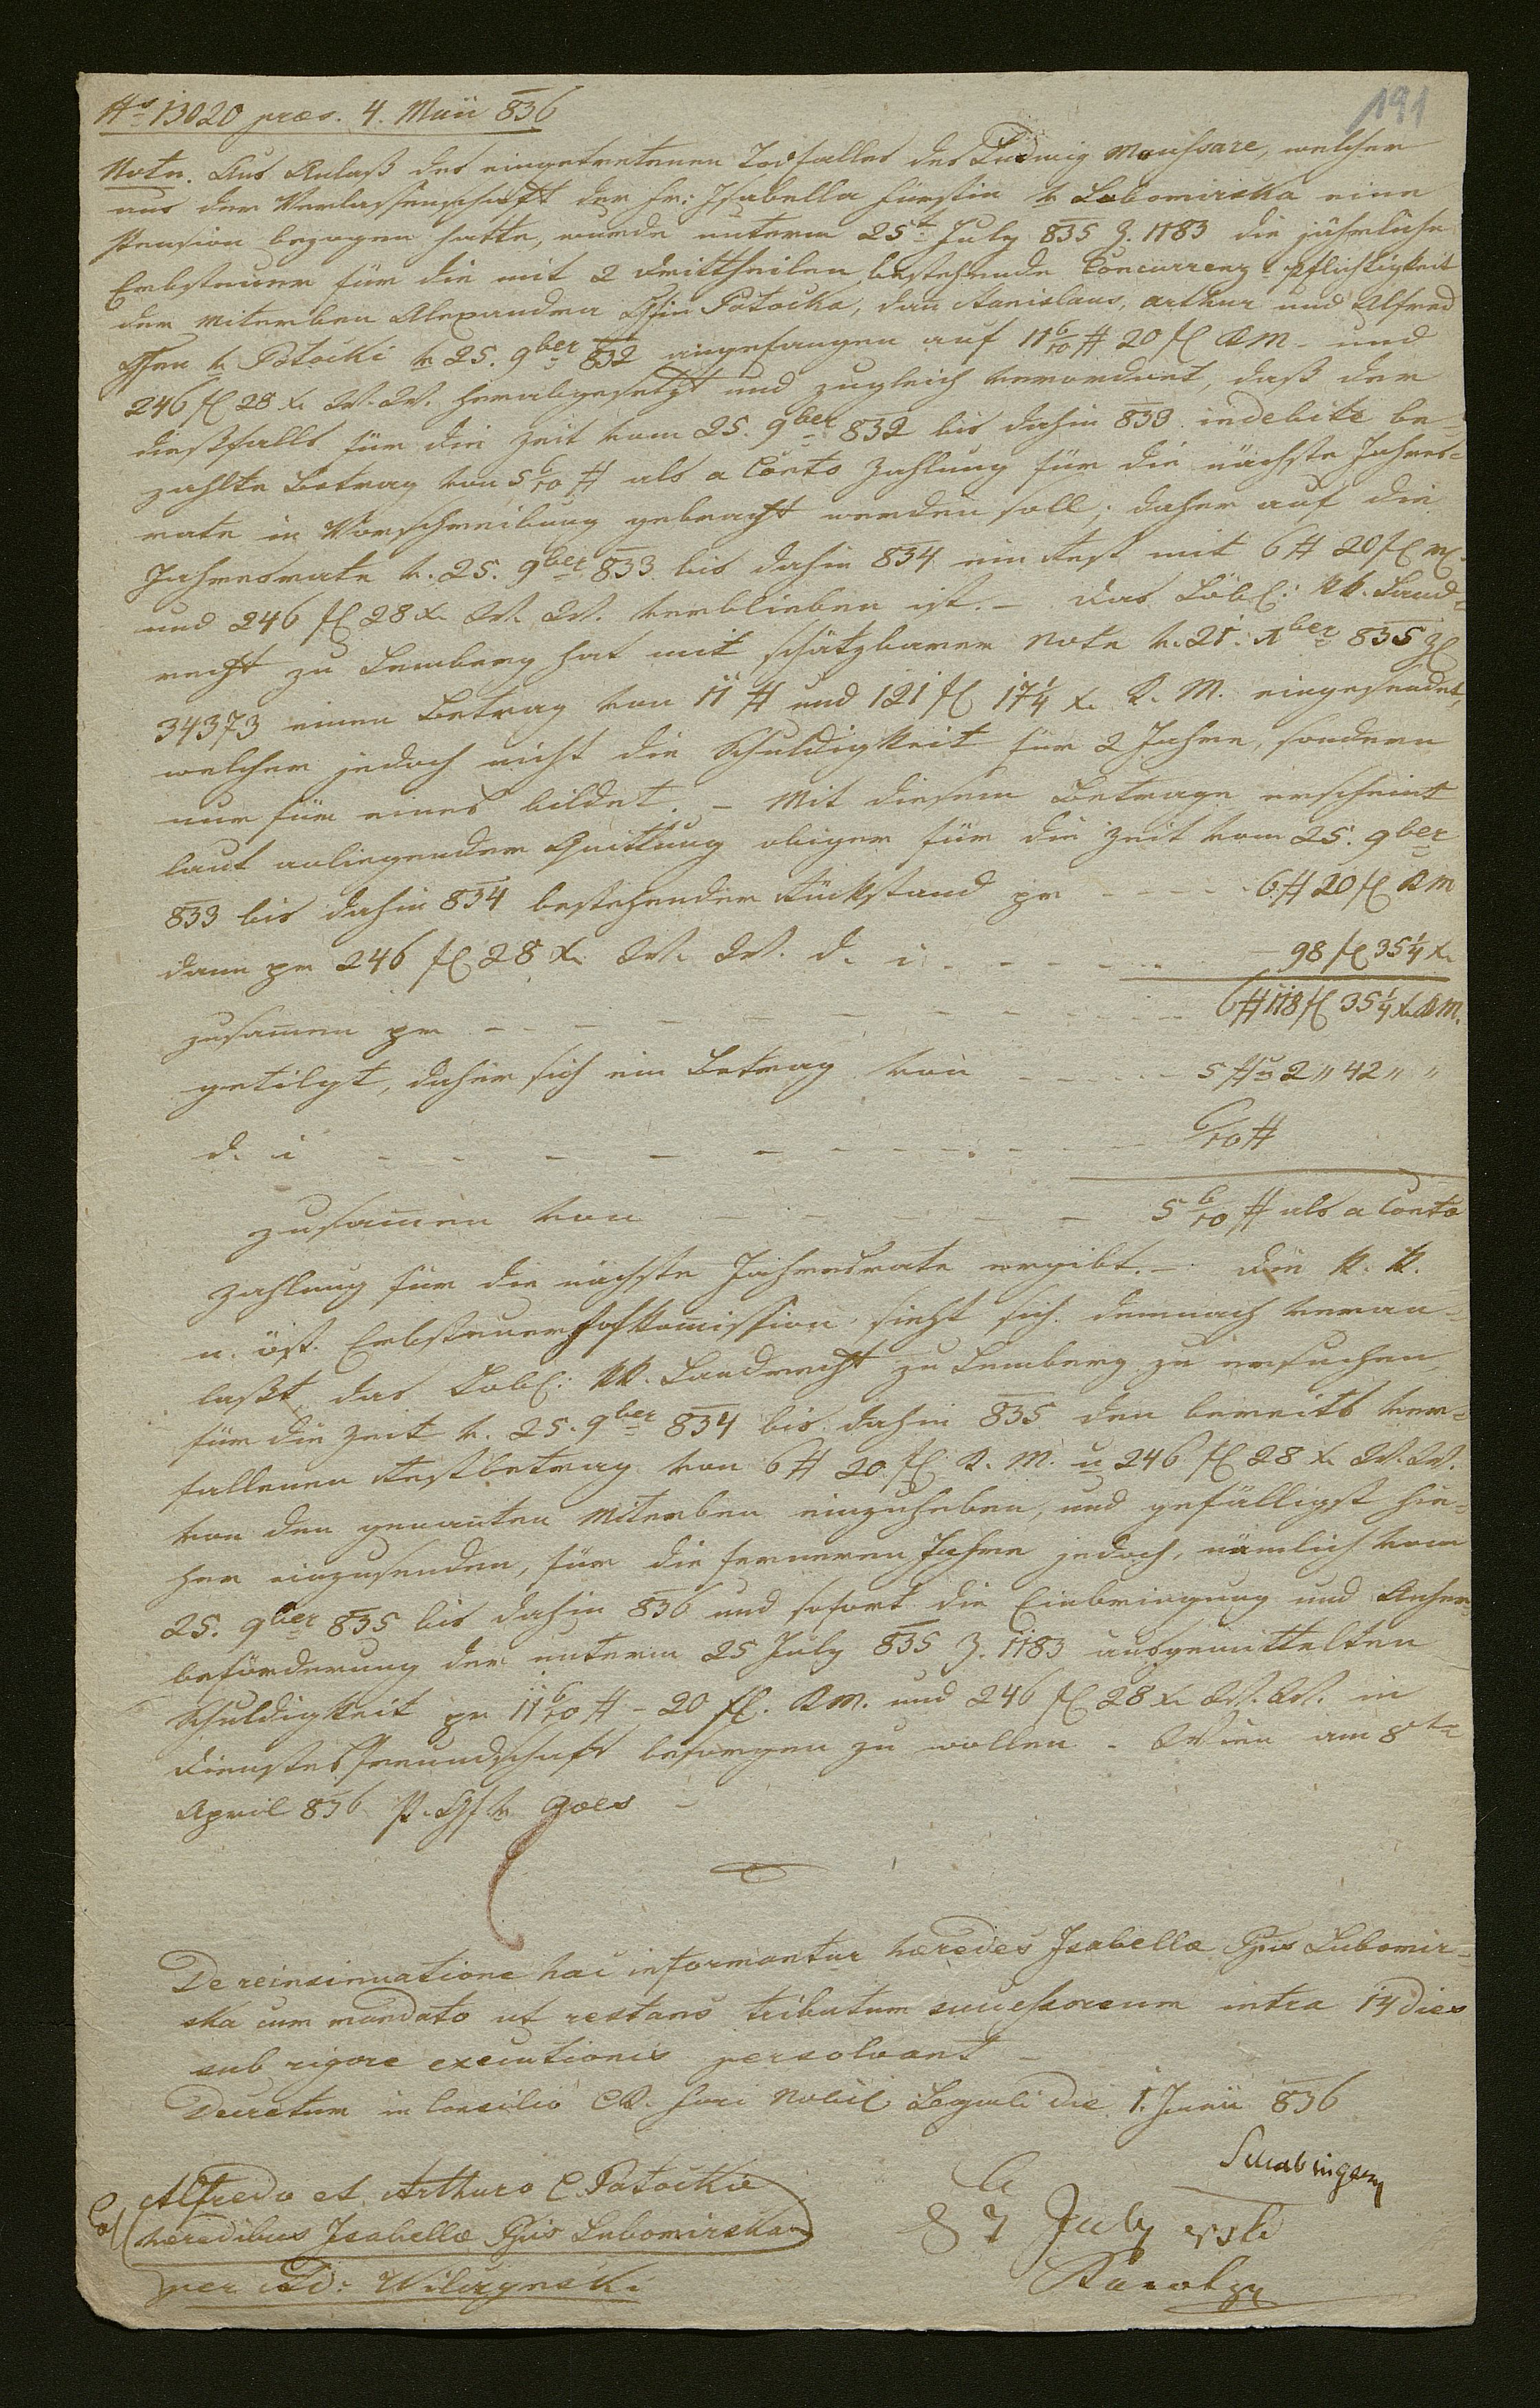 191
No 13020 præs. 4. Maii 836
Nota. Aus Anlaß des eingetretenen Todfalles des Ludwig Moussare, welcher
aus der Verlassenschaft der Fr: Isabella Fürstin v Lubomirska eine
Pension bezogen hatte, wurde unterm 25t July 835 Z. 1183 die jährliche
Erbsteuer für die mit 2 Drittheilen bestehende Concurrenz-Pflichtigkeit
der Miterben Alexandra Gfin Potocka, dañ Stanislaus, Arthur und Alfred
Gfen v. Potocki v 25. 9ber 832 angefangen auf 11 6/10 # 20 fl KM - und
246 fl 28 x. W. W. herabgesetzt und zugleich verordnet, daß der
dießfalls für die Zeit vom 25. 9ber 832 bis dahin 833 indebite be-
zahlte Betrag von 5 6/10 # als a Conto Zahlung für die nächste Jahres-
rate in Vorschreibung gebracht werden soll; daher auf die
Jahresrate v. 25. 9ber 833 bis dahin 834 ein Rest mit 6 # 20 fl
und 246 fl 28 x. W. W. verblieben ist. - Das Löbl: kk. Land-
recht zu Lemberg hat mit schätzbarer Note v. 21. Xber 835 Zl
34373 einen Betrag von 11 # und 121 fl 17 1/4 x. K. M. eingesendet,
welcher jedoch nicht die Schuldigkeit für 2 Jahre, sondern
nur für eines bildet. - Mit diesem Betrage erscheint
laut anliegender Quittung obiger für die Zeit vom 25. 9ber
833 bis dahin 834 bestehender Rückstand pr - - - - 6 # 20 fl KM
dann pr 246 fl 28 x. W. W. d. i. - - - - - 98 fl 35 1/4 x.
zusam̃en pr - - - - - - - - - 6 # 118 fl 35 1/4 x. KM.
getilgt, daher sich ein Betrag von - - - - - 5 # u 2 " 42 " "
d. i - - - - - - - - - 6/10 #
zusam̃en von - - - - 5 6/10 # als a Conto
Zahlung für die nächste Jahresrate ergibt. - Die k. k.
n. öst. Erbsteuerhofkom̃ission sieht sich demnach veran-
laßt das Löbl: kk. Landrecht zu Lemberg zu ersuchen,
für die Zeit v. 25. 9ber 834 bis dahin 835 den bereits ver-
fallenen Restbetrag von 6 # 20 fl K. M. u 246 fl 28 x. W. W.
von den genañten Miterben einzuheben, und gefälligst hie-
her einzusenden, für die ferneren Jahre jedoch, nämlich vom
25. 9ber 835 bis dahin 836 und sofort die Einbringung und Anher-
beförderung der unterm 25 July 835 Z. 1183 ausgemittelten
Schuldigkeit pr 11 6/10 # - 20 fl. KM. und 246 fl 28 x. W. W. in
Dienstesfreundschaft besorgen zu wollen. - Wien am 8ten
April 836 P. Gf. v. Goes -
De reinsinuatione hac informantur hæredes Isabellæ Ppis Lubomir-
ska cum mandato ut restans tributum successorum intra 14 dies
sub rigore executionis persolvant -
Decretum in Consilio CR. Fori Nobil Leopoli die 1. Junii 836
Alfredo et Arthuro C. Potockie
hæredibus Isabellæ Ppis Lubomirska
per Ad:
7 July